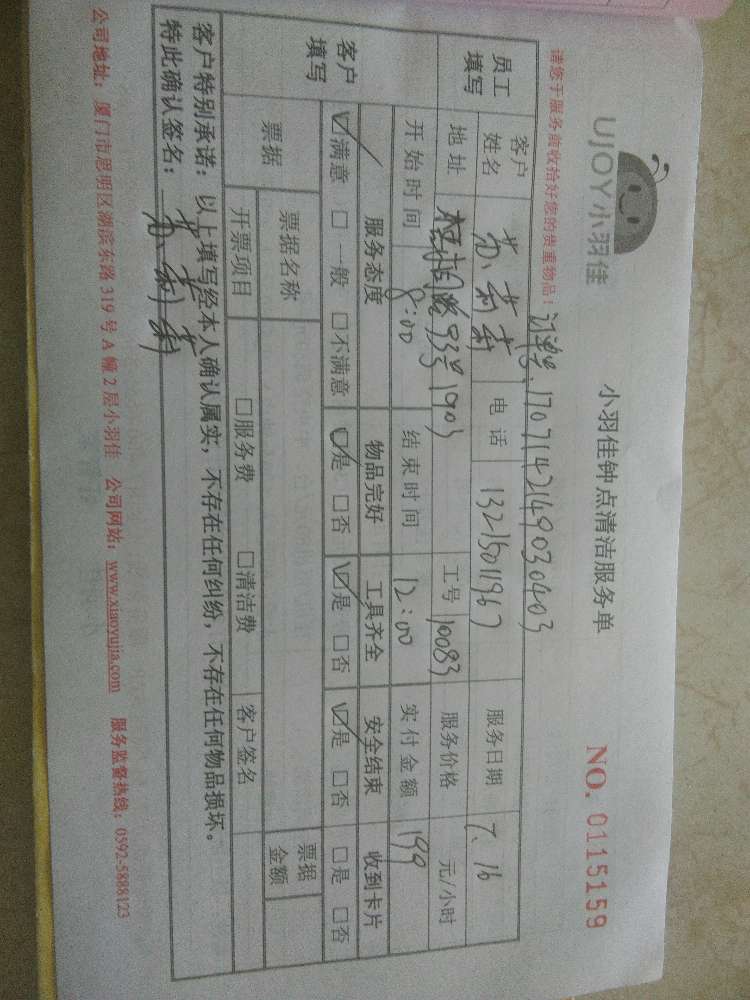 UJOY小羽佳
小羽佳钟点清洁服务单
NO. 0115159
请您于服务前收拾好您的贵重物品!
订单号、1707142149030403
员工填写
客户姓名
电话 13215011967
服务日期 7、16
地址
93号1903
工号 10083
服务价格 元/小时
开始时间 8:00
结束时间 12:00
实付金额 199
客户填写
服务态度 物品完好 工具齐全 安全结束 收到卡片
☑满意 □一般 □不满意 ☑是 □否 ☑是 □否 ☑是 □否 □是 □否
票据
票据名称
票据金额
开票项目 □服务费 □清洁费 客户签名
客户特别承诺:以上填写经本人确认属实,不存在任何纠纷,不存在任何物品损坏。
特此确认签名:
公司地址:厦门市思明区湖滨东路 319 号 A 幢 2 层小羽佳 公司网站:www.xiaoyujia.com 服务监督热线:0592-5888123